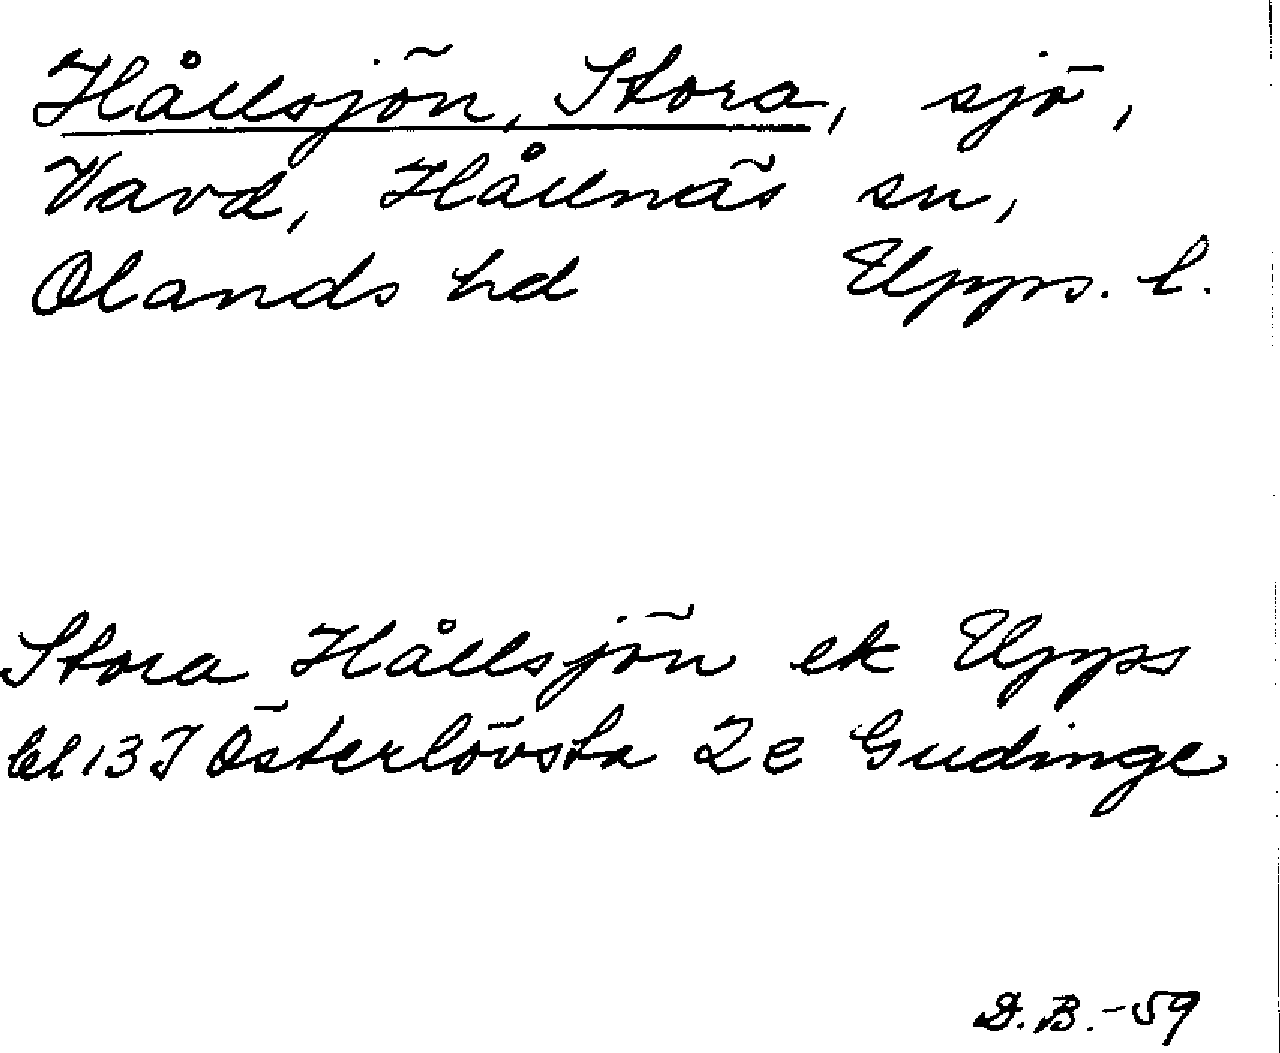 Hållsjön, Stora, sjö,
Vavd, Hållnäs sn,
Olands hd Upps. l.
Stora Hållsjön ek Upps
bl 137 Österlövsta 2e Gudinge
D.B.-59